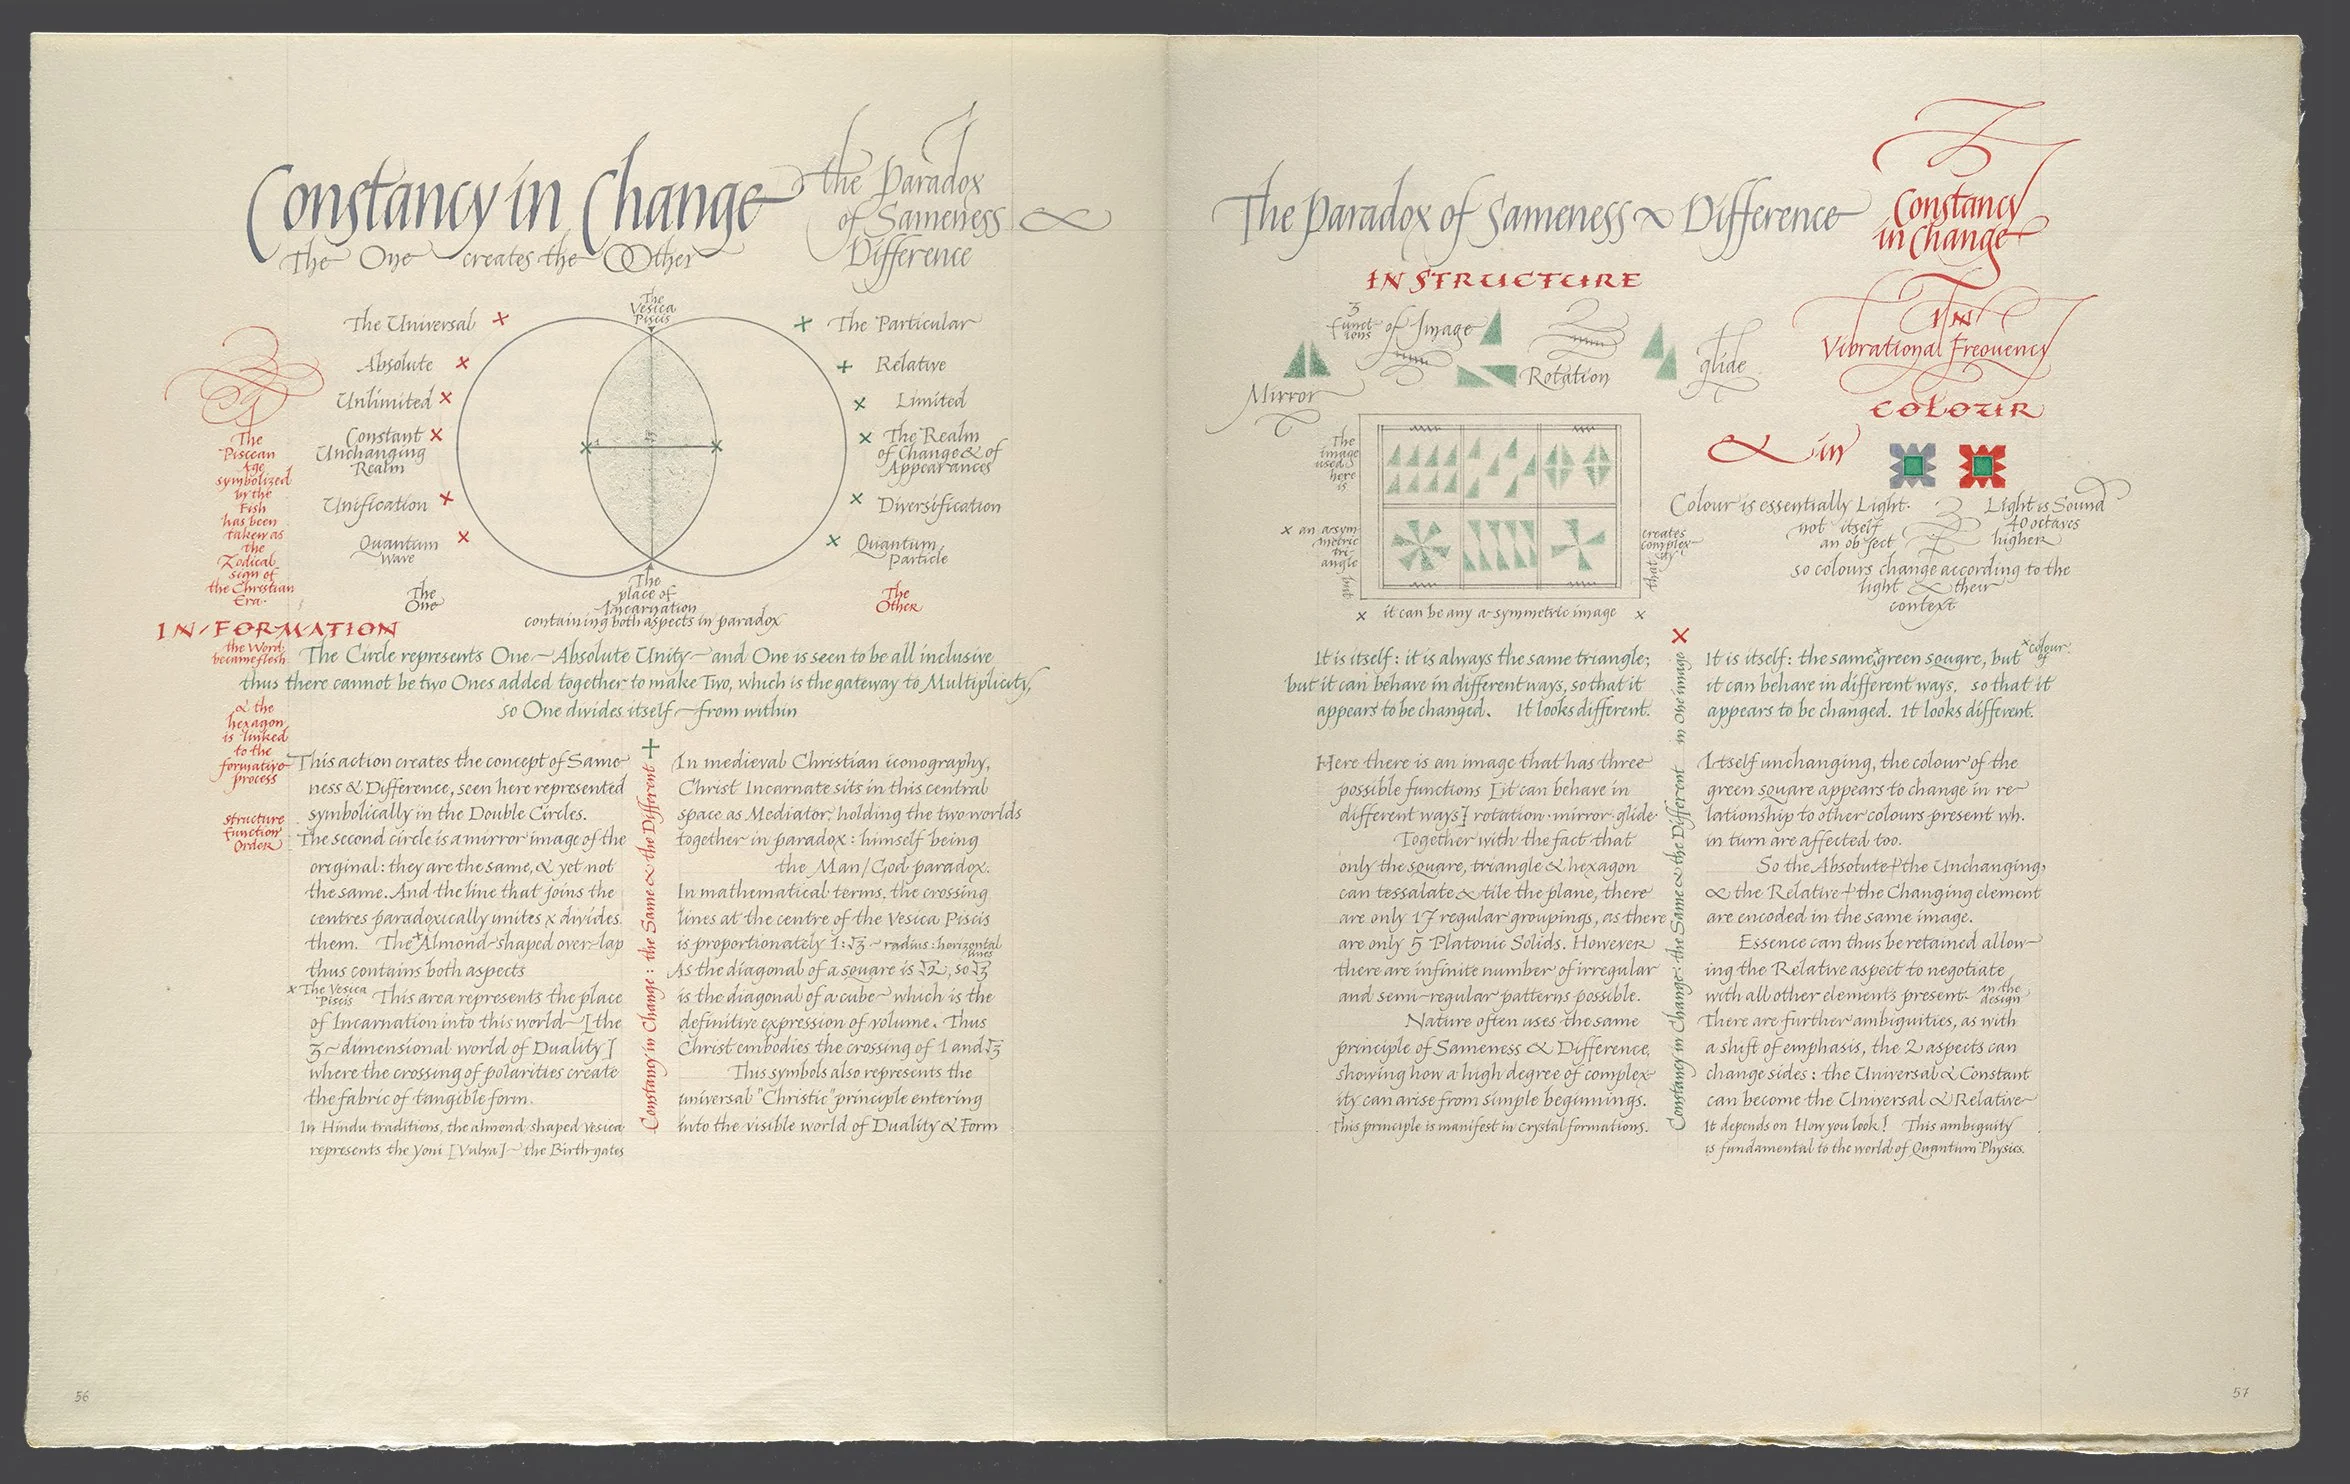 Constancy in Change
The One creates the Other
the Paradox
of Sameness &
Difference
The
Vesica
Piscis
The Universal
Absolute
Unlimited
Constant
Unchanging
Realm
Unification
Quantum
Wave
The
One
The Particular
Relative
Limited
The Realm
of Change & of
Appearances
Diversification
Quantum
Particle
The
Other
The
place of
Incarnation
containing both aspects in paradox
The
Piscean
Age
symbolized
by the
Fish
has been
taken as
the
Zodical
sign of
the Christian
Era.
IN/FORMATION
the Word
became flesh
& the
hexagon
is linked
to the
formative
process
structure
function
Order
The Circle represents One – Absolute Unity – and One is seen to be all inclusive
thus there cannot be two Ones added together to make Two, which is the gateway to Multiplicity,
so One divides itself – from within
This action creates the concept of Same
ness & Difference, seen here represented
symbolically in the Double Circles.
The second circle is a mirror image of the
original: they are the same, & yet not
the same. And the line that joins the
centres paradoxically unites & divides
them. The x Almond-shaped over-lap
thus contains both aspects
x The Vesica
Piscis
This area represents the place
of Incarnation into this world – [the
3-dimensional world of Duality]
where the crossing of polarities create
the fabric of tangible form.
In Hindu traditions, the almond shaped Vesica
represents the Yoni [Vulva] – the Birthgates
Constancy in Change: the Same & the Different
In medieval Christian iconography,
Christ Incarnate sits in this central
space as Mediator, holding the two worlds
together in paradox: himself being
the Man/God paradox.
In mathematical terms, the crossing
lines at the centre of the Vesica Piscis
is proportionately 1:√3 – radius: horizontal
lines
As the diagonal of a square is √2, so √3
is the diagonal of a cube – which is the
definitive expression of volume. Thus
Christ embodies the crossing of 1 and √3
This symbols also represents the
universal "Christic" principle entering
into the visible world of Duality & Form
56
The Paradox of Sameness & Difference
IN STRUCTURE
3
funct
ions
of Image
Mirror
Rotation
glide
The
image
used
here
is
x an asym
metric
tri-
angle
but
x it can be any a-symmetric image x
creates
complex
ity
that
It is itself: it is always the same triangle;
but it can behave in different ways, so that it
appears to be changed. It looks different.
Here there is an image that has three
possible functions [it can behave in
different ways] rotation · mirror · glide
Together with the fact that
only the square, triangle & hexagon
can tessalate & tile the plane, there
are only 17 regular groupings, as there
are only 5 Platonic Solids. However
there are infinite number of irregular
and semi-regular patterns possible.
Nature often uses the same
principle of Sameness & Difference,
showing how a high degree of complex
ity can arise from simple beginnings.
This principle is manifest in crystal formations.
Constancy in Change: the Same & the Different in One image
Constancy
in Change
IN
Vibrational Frequency
COLOUR
& in
Colour is essentially Light.
not itself
an object
Light is Sound
40 octaves
higher
so colours change according to the
light & their
context
It is itself: the same x green square, but
x colour
of
it can behave in different ways. so that it
appears to be changed. It looks different.
Itself unchanging, the colour of the
green square appears to change in re-
lationship to other colours present wh.
in turn are affected too.
So the Absolute + the Unchanging,
& the Relative + the Changing element
are encoded in the same image.
Essence can thus be retained allow-
ing the Relative aspect to negotiate
with all other elements present in the
design
There are further ambiguities, as with
a shift of emphasis, the 2 aspects can
change sides: the Universal & Constant
can become the Universal & Relative
It depends on How you look! This ambiguity
is fundamental to the world of Quantum Physics.
57